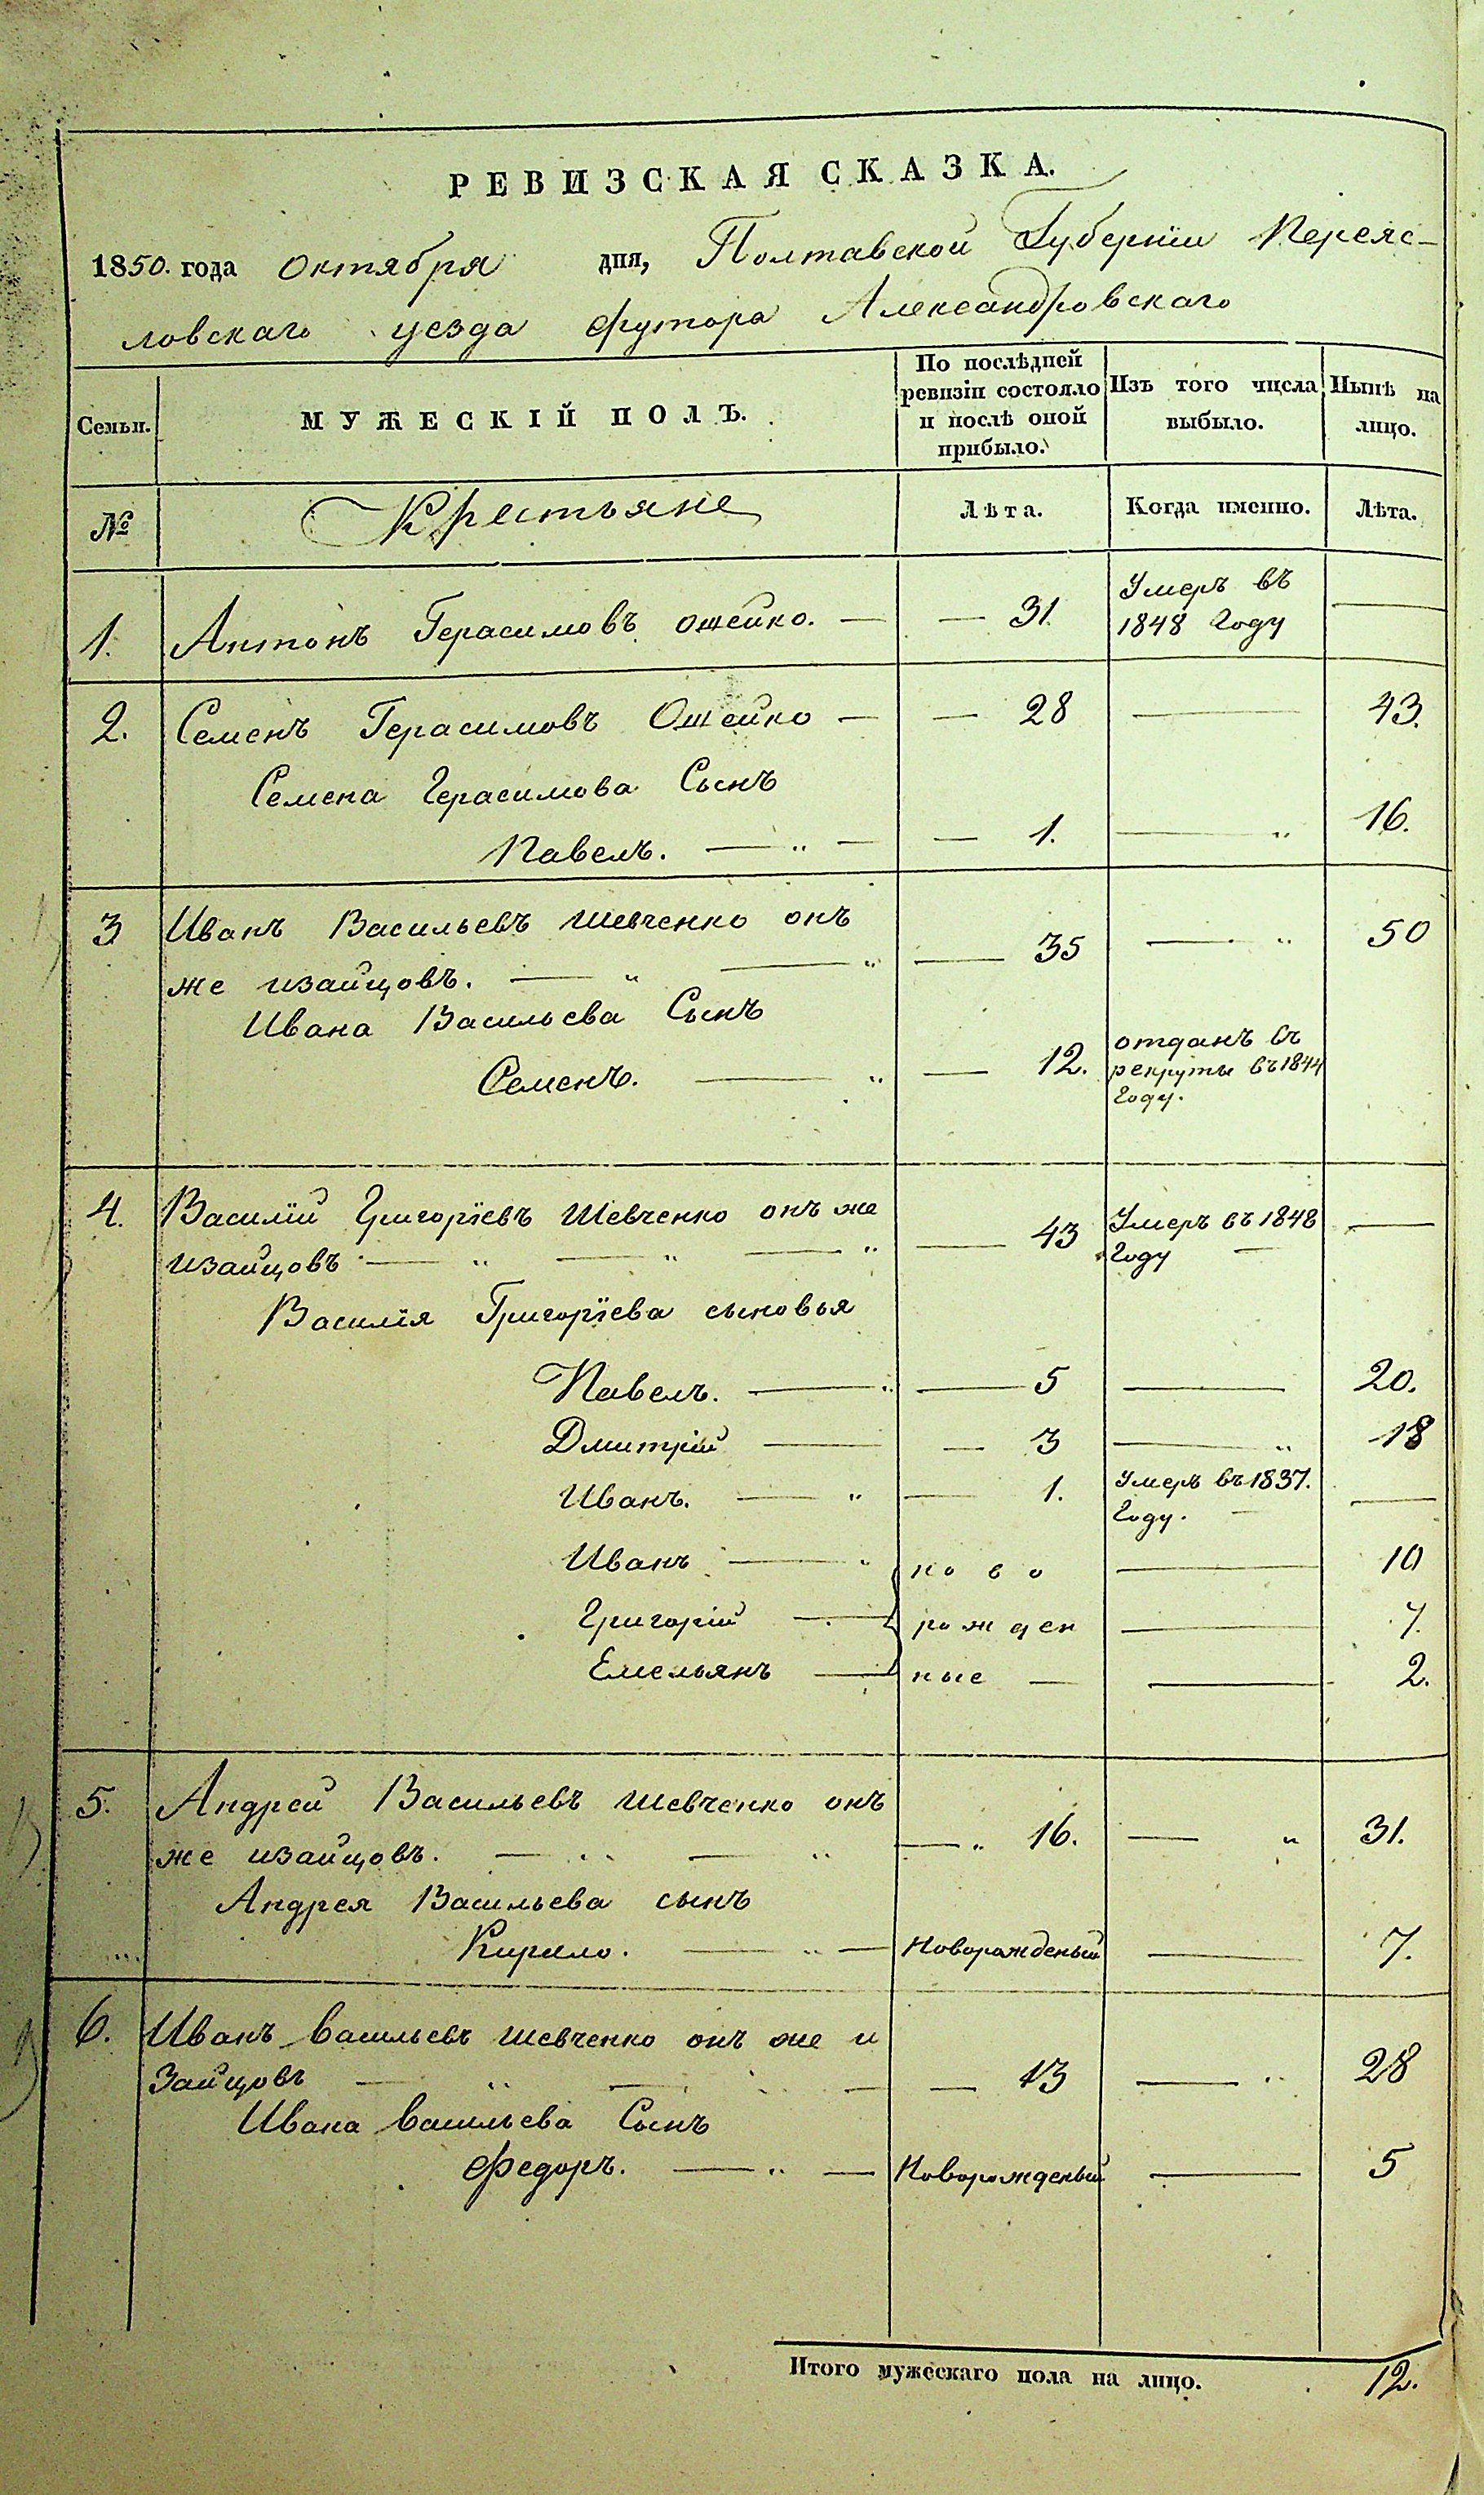 РЕВИЗСКАЯ СКАЗКА.
1850. года октября дня, Полтавской Губернїи Переяс-
ловскаго уезда футора Александровскаго
Семьи.
МУЖЕСКІЙ ПОЛЪ.
По послѣдней
ревизіи состояло
и послѣ оной
прибыло.
Изъ того числа
выбыло.
Нынѣ на
лицо.
№
Крестьяне
Лѣта.
Когда именно.
Лѣта.
1. Антонъ Герасимовъ ошейко. — — 31. Умеръ въ —
1848 Году
2. Семенъ Герасимовъ Ошейко — — 28 — 43.
Семена Герасимова Сынъ
Павелъ. — „ — — 1. — „ 16.
3 Иванъ Васильевъ шевченко онъ
же изайцовъ. — „ — „ — 35 — „ 50
Ивана Васильева Сынъ
Семенъ. — „ — 12. отданъ въ
рекруты въ 1844
Году.
4. Василїй Григорїевъ Шевченко онъ же
изайцовъ — „ — „ — „ — 43 Умеръ въ 1848 —
Году —
Василїя Григорїева сыновья
Павелъ. — „ — 5 — 20.
Дмитрій — — 3 — „ 18
Иванъ. — „ — 1. Умеръ въ 1837. —
Году. —
Иванъ — „ ново — 10
Григорій — рожден — 7.
Емельянъ — ные — — 2.
5. Андрей Васильевъ шевченко онъ
же изайцовъ. — „ — „ — „ 16. — „ 31.
Андрея Васильева сынъ
Кирило. — „ — Новорожденый — 7.
6. Иванъ Васильевъ шевченко онъ же и
Зайцовъ — „ — — — 13 — „ 28
Ивана Васильева Сынъ
Федоръ. — „ — Новорожденый — 5
Итого мужескаго пола на лицо. 12.